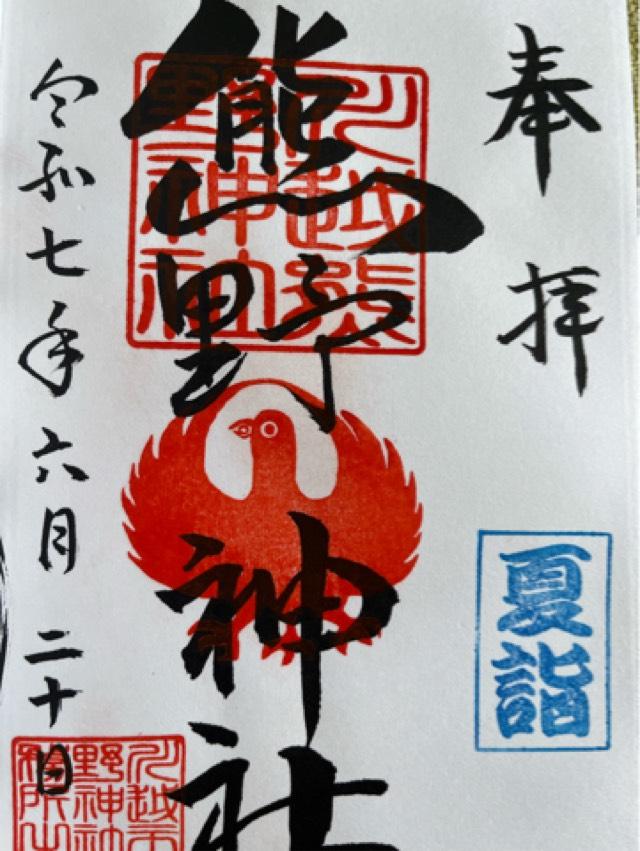 奉拝
夏詣
熊野神社
川越熊
野神社
令和七年六月二十日
川越市
野神社